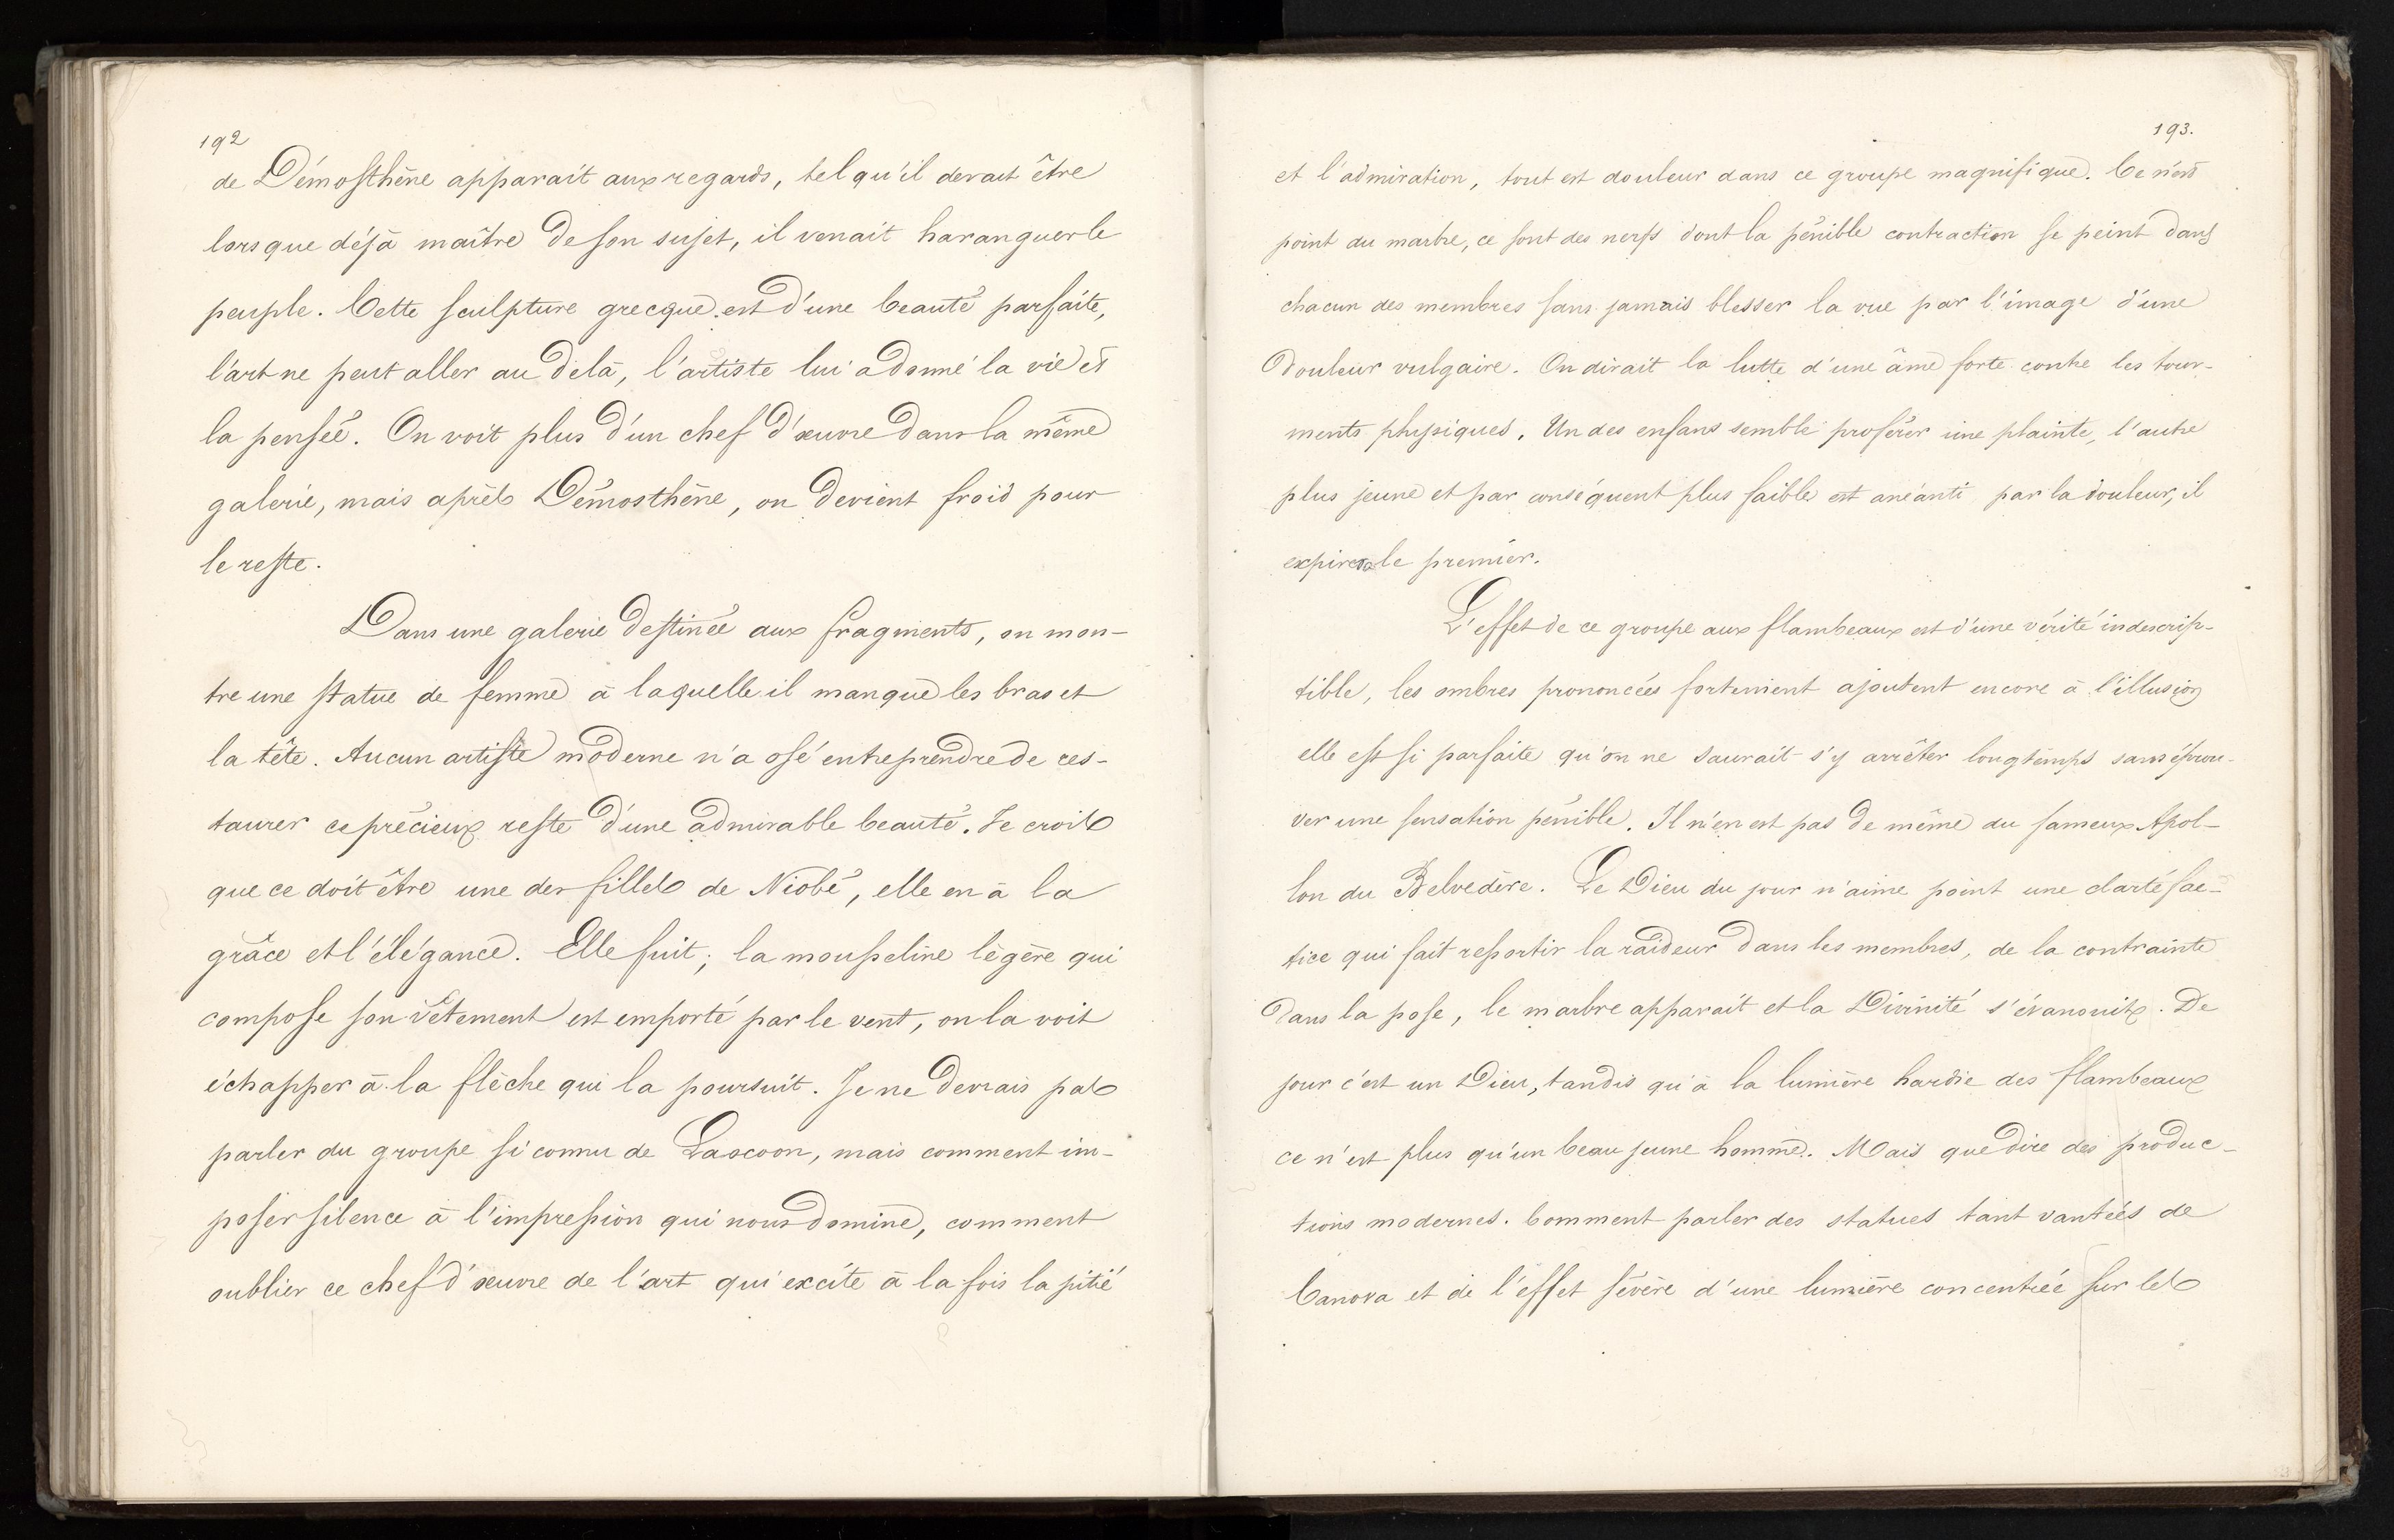 192
de Démosthène apparait aux regards, tel qu'il devait être
lorsque déjà maître de son sujet, il venait haranguer le
peuple. Cette sculpture grecque est d'une beauté parfaite,
l'art ne peut aller au delà, l'artiste lui a donné la vie et
la pensée. On voit plus d'un chef d'œuvre dans la même
galerie, mais après Démosthène, on devient froid pour
le reste.
Dans une galerie destinée aux fragments, on mon-
tre une statue de femme à laquelle il manque les bras et
la tête. Aucun artiste moderne n'a osé entreprendre de res-
taurer ce précieux reste d'une admirable beauté. Je crois
que ce doit être une des filles de Niobé, elle en à la
grâce et l'élégance. Elle fuit; la mousseline légère qui
compose son vêtement est emporté par le vent, on la voit
échapper à la flèche qui la poursuit. Je ne devrais pas
parler du groupe si connu de Laocoon, mais comment im-
poser silence à l'impression qui nous domine, comment
oublier ce chef d'œuvre de l'art qui excite à la fois la pitié
193.
et l'admiration, tout est douleur dans ce groupe magnifique. Ce n'est
point du marbre, ce sont des nerfs dont la pénible contraction se peint dans
chacun des membres sans jamais blesser la vue par l'image d'une
douleur vulgaire. On dirait la lutte d'une âme forte contre les tour-
ments physiques. Un des enfans semble proférer une plainte, l'autre
plus jeune et par conséquent plus faible est anéanti par la douleur, il
expirera le premier.
L'effet de ce groupe aux flambeaux est d'une vérité indescrip-
tible, les ombres prononcées fortement ajoutent encore à l'illusion
elle est si parfaite qu'on ne saurait s'y arrêter longtemps sans éprou-
ver une sensation pénible. Il n'en est pas de même du fameux Apol-
lon du Belvedère. Le Dieu du jour n'aime point une clarté fac-
tice qui fait ressortir la raideur dans les membres, de la contrainte
dans la pose, le marbre apparait et la Divinité s'évanouit. De
jour c'est un Dieu, tandis qu'à la lumière hardie des flambeaux
ce n'est plus qu'un beau jeune homme. Mais que dire des produc-
tions modernes. Comment parler des statues tant vantées de
Canova et de l'effet sévère d'une lumière concentrée sur les